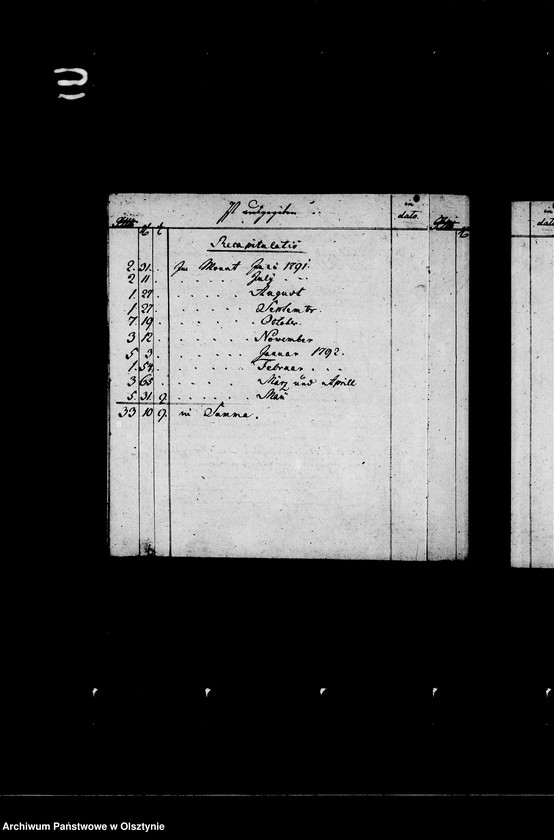 Ist ausgegeben
in dato
Recapitulatio
2. 31. Im Monat Juni 1791.
2 11. July
1. 27. August
1 27. Septembr.
7. 19. Octobr.
3 12. November
5 3. Januar 1792.
1. 54. Februar
3 65 März und Aprill
5. 31. 9. Maii
33 10 9. in Summa.
in dato
Archiwum Państwowe w Olsztynie